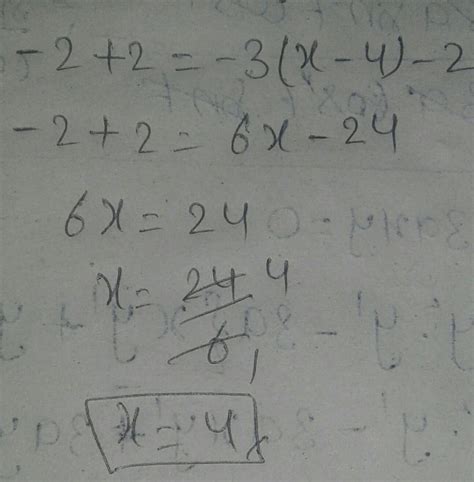 -2+2=-3(x-4)-2
-2+2=6x-24
6x=24
x=24/6 4
x=4